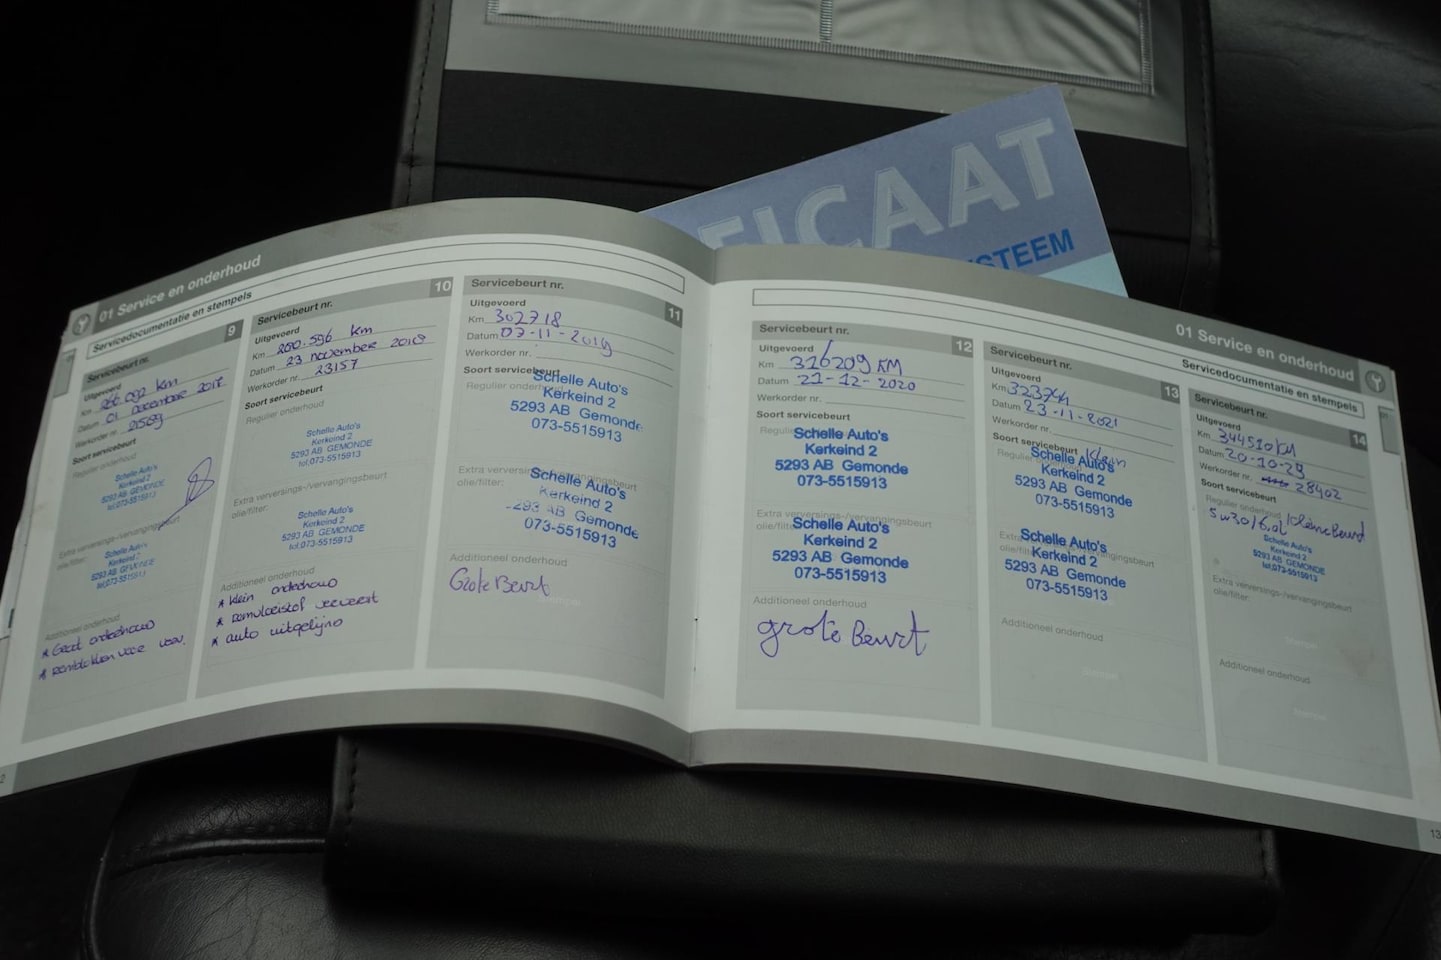 FICAAT
STEEM
01 Service en onderhoud
Servicedocumentatie en stempels
Servicebeurt nr. 9
Uitgevoerd
Km 266.092 km
Datum 01 november 2017
Werkorder nr.
Soort servicebeurt
Regulier onderhoud
Schelle Auto's
Kerkeind 2
5293 AB GEMONDE
tel.073-5515913
Extra verversings-/vervangingsbeurt
olie/filter:
Schelle Auto's
Kerkeind 2
5293 AB GEMONDE
tel.073-5515913
Additioneel onderhoud
* Groot onderhoud
Servicebeurt nr. 10
Uitgevoerd
Km 280.596 km
Datum 23 november 2018
Werkorder nr. 23157
Soort servicebeurt
Regulier onderhoud
Schelle Auto's
Kerkeind 2
5293 AB GEMONDE
tel.073-5515913
Extra verversings-/vervangingsbeurt
olie/filter:
Schelle Auto's
Kerkeind 2
5293 AB GEMONDE
tel.073-5515913
Additioneel onderhoud
* klein onderhoud
* remvloeistof ververst
* auto uitgelijnd
Servicebeurt nr. 11
Uitgevoerd
Km 302718
Datum 07-11-2019
Werkorder nr.
Soort servicebeurt
Regulier onderhoud
Schelle Auto's
Kerkeind 2
5293 AB Gemonde
073-5515913
Extra verversings-/vervangingsbeurt
olie/filter:
Schelle Auto's
Kerkeind 2
293 AB Gemonde
073-5515913
Additioneel onderhoud
Grote Beurt
01 Service en onderhoud
Servicedocumentatie en stempels
Servicebeurt nr. 12
Uitgevoerd
Km 316209 KM
Datum 21-12-2020
Werkorder nr.
Soort servicebeurt
Regulier
Schelle Auto's
Kerkeind 2
5293 AB Gemonde
073-5515913
Extra verversings-/vervangingsbeurt
olie/filter:
Schelle Auto's
Kerkeind 2
5293 AB Gemonde
073-5515913
Additioneel onderhoud
grote Beurt
Servicebeurt nr. 13
Uitgevoerd
Km
Datum 23-11-2021
Werkorder nr.
Soort servicebeurt Klein
Regulier
Schelle Auto's
Kerkeind 2
5293 AB Gemonde
073-5515913
Extra verversings-/vervangingsbeurt
olie/filter:
Schelle Auto's
Kerkeind 2
5293 AB Gemonde
073-5515913
Additioneel onderhoud
Stempel
Servicebeurt nr. 14
Uitgevoerd
Km 344510 KM
Datum
Werkorder nr. 28402
Soort servicebeurt
Regulier onderhoud kleine Beurt
5w30/6,0l
Schelle Auto's
Kerkeind 2
5293 AB GEMONDE
tel.073-5515913
Extra verversings-/vervangingsbeurt
olie/filter:
Stempel
Additioneel onderhoud
Stempel
13